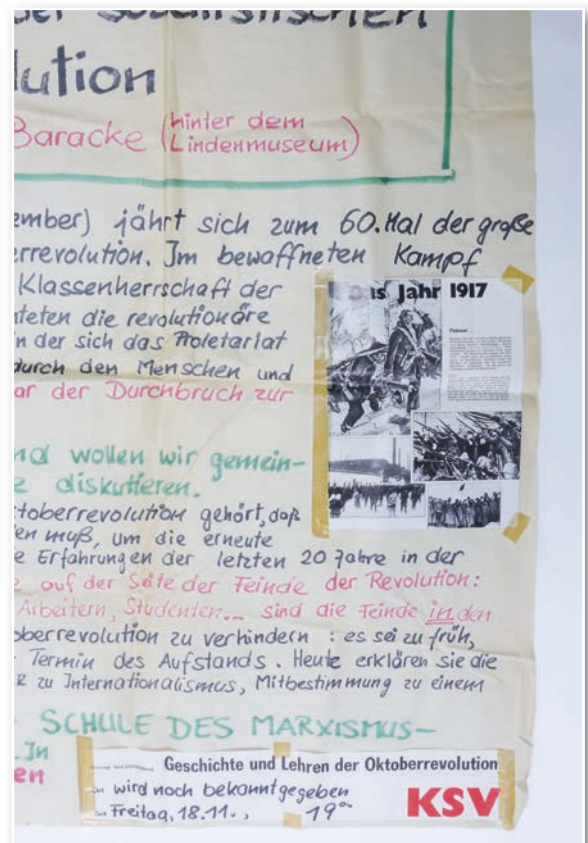 der sozialistischen
lution
Baracke (hinter dem
Lindenmuseum)
ember) jährt sich zum 60. Mal der große
errevolution. Im bewaffneten Kampf
Klassenherrschaft der
teten die revolutionäre
n der sich das Proletariat
durch den Menschen und
ar der Durchbruch zur
Das Jahr 1917
Februar
nd wollen wir gemein-
e diskutieren.
toberrevolution gehört, daß
en muß, um die erneute
e Erfahrungen der letzten 20 Jahre in der
e auf der Seite der Feinde der Revolution:
Arbeitern, Studenten... sind die Feinde in den
oberrevolution zu verhindern : es sei zu früh,
Termin des Aufstands. Heute erklären sie die
R zu Internationalismus, Mitbestimmung zu einem
SCHULE DES MARXISMUS-
. In
en
Geschichte und Lehren der Oktoberrevolution
Ort wird noch bekanntgegeben
Freitag, 18.11., 19⁰⁰
KSV